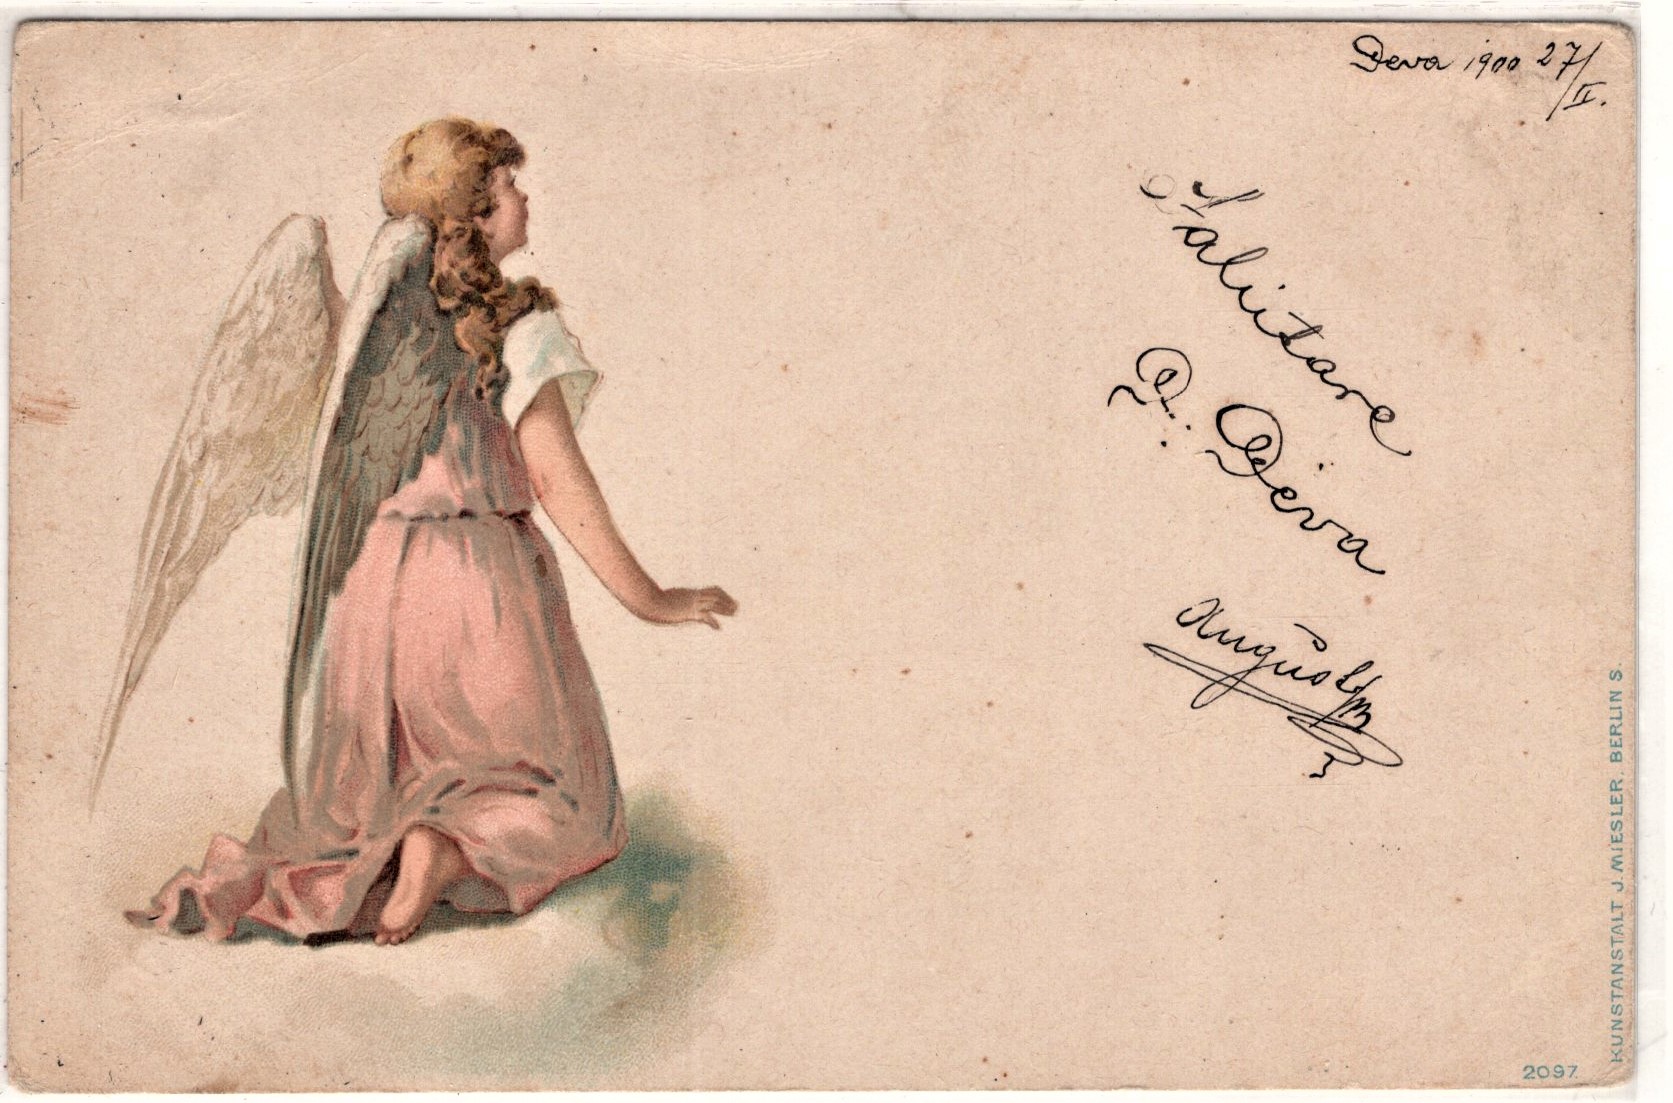 Deva 1900 27/II.
Salutare
D: Deva
August
KUNSTANSTALT J. MIESLER. BERLIN S.
2097